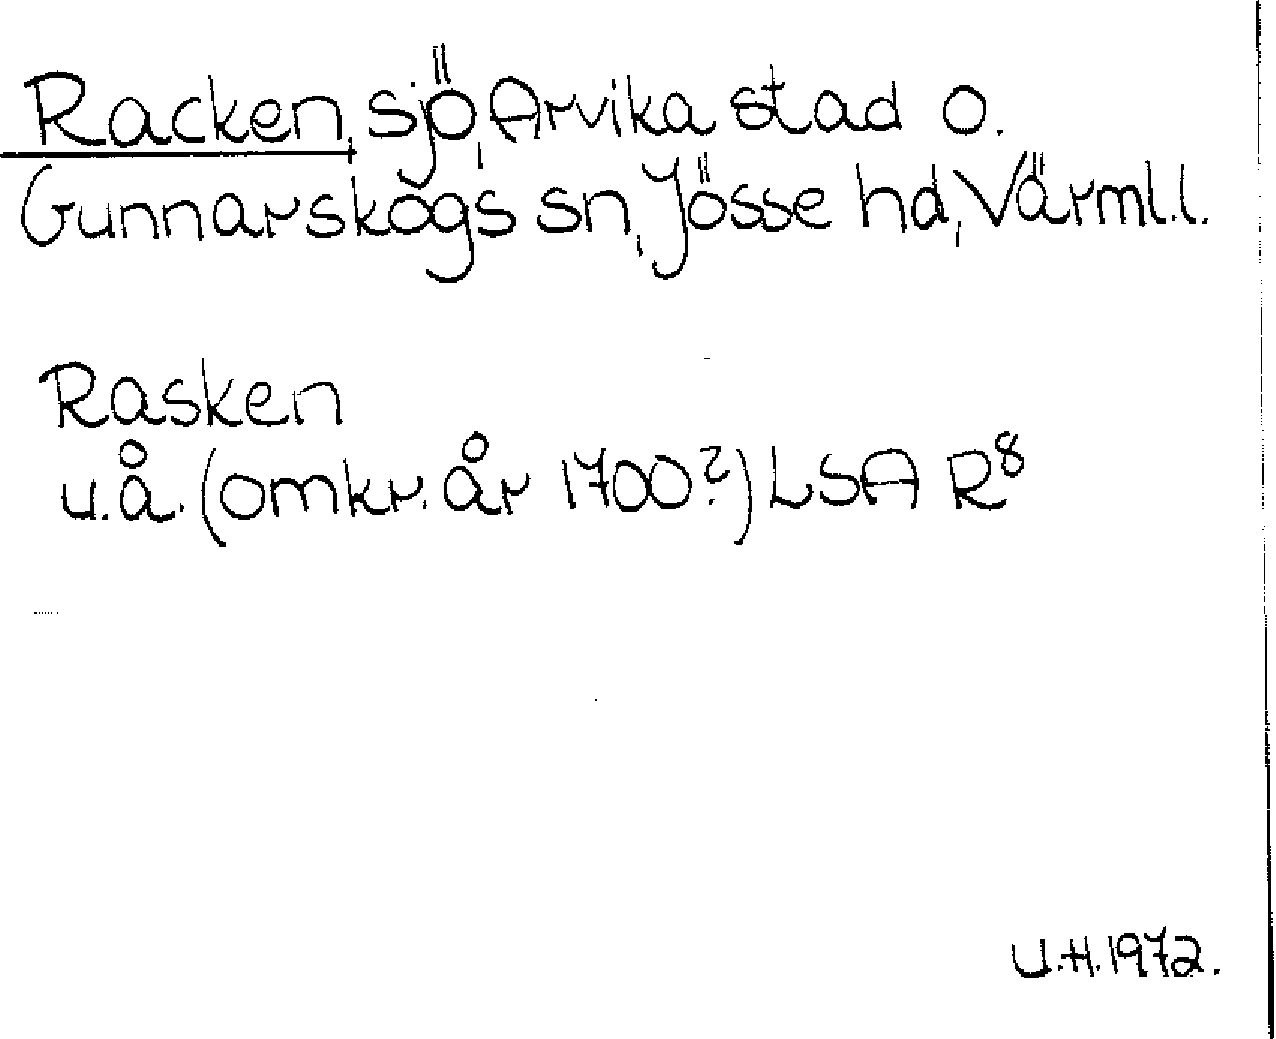 Racken, sjö, Arvika stad o.
Gunnarskogs sn, Jösse hd, Värml.l.
Rasken
u.å. (omkr. år 1700?) LSA R8
U.H. 1972.